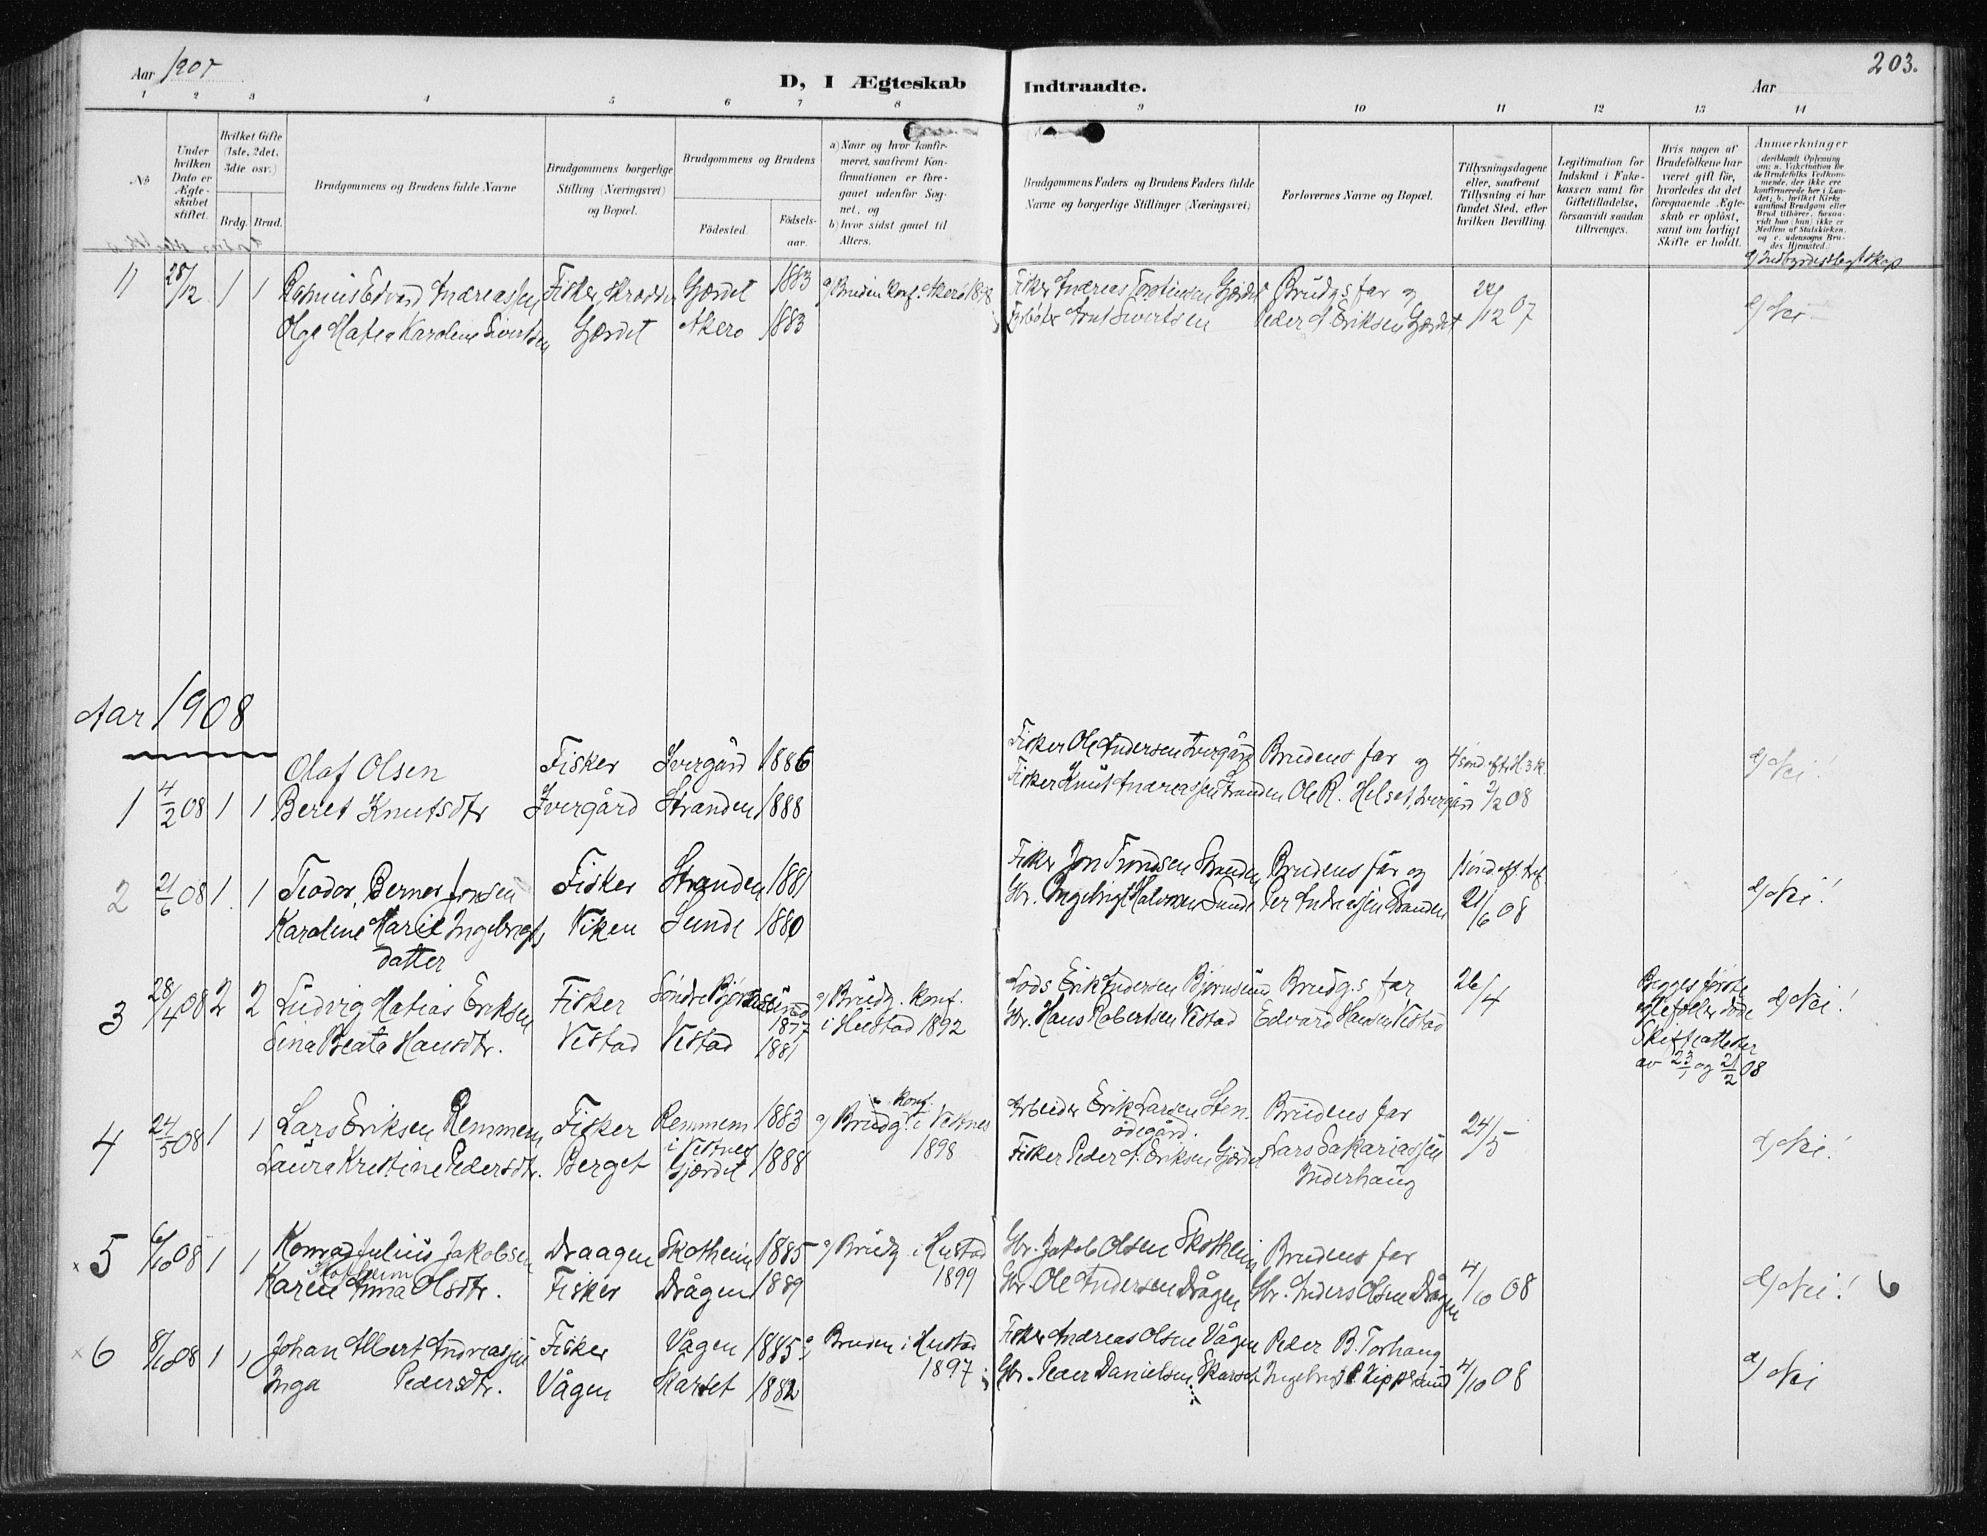 Aar 1907
D, I Ægteskab Indtraadte.
Aar
203.
1 2 3 4 5 6 7 8 9 10 11 12 13 14
No
Under hvilken Dato er Ægteskabet stiftet.
Hvilket Gifte (1ste, 2det, 3die osv.)
Brdg. Brud.
Brudgommens og Brudens fulde Navne
Brudgommens borgerlige Stilling (Næringsvei) og Bopæl.
Brudgommens og Brudens
Födested. Födselsaar.
a) Naar og hvor konfirmeret, saafremt Konfirmationen er foregaaet udenfor Sognet, og
b) hvor sidst gaaet til Alters.
Brudgommens Faders og Brudens Faders fulde Navne og borgerlige Stillinger (Næringsvei)
Forlovernes Navne og Bopæl.
Tillysningsdagene eller, saafremt Tillysning ei har fundet Sted, efter hvilken Bevilling.
Legitimation for Indskud i Fakekassen samt for Giftetilladelse, forsaavidt saadan tiltrænges.
Hvis nogen af Brudefolkene har været gift för, hvorledes da det foregaaende Ægteskab er oplöst, samt om lovligt Skifte er holdt.
Anmærkninger
11 28/12 1 1 Rasmus Edvard Andreassen Fisker, Skrædder Gjærdet 1883 a) Bruden konf. i Akerø 1898 Fisker Andreas Torstensen Gjærdet Brudg.s far og 24/12 07 d) Nei
Olga Matea Karoline Sivertsen Gjærdet Akerø 1883 Knut Sivertsen Peder A. Eriksen Gjærdet
Aar 1908
Olaf Olsen Fisker Ivergård 1886 Fisker Ole Andersen Ivergård Brudens far og 4 sønd. eft. Hel. 3 k. d) Nei!
1 4/2 08 1 1 Beret Knutsdtr Ivergård Stranden 1888 Fisker Knut Andreassen Stranden Ole R. Helset, Ivergård 2/2 08
2 21/6 08 1 1 Teodor Berner Jonsen Fisker Stranden 1881 Fisker Jon Trondsen Stranden Brudens far og 1 sønd. eft. tref. d) Nei!
Karoline Marie Ingebrigts Viken Sunde 1880 Gbr. Ingebrigt Halvorsen Sunde Per Andreassen Stranden 21/6 08
datter
3 28/4 08 2 2 Ludvig Matias Eriksen Fisker Søndre Bjørnsund 1877 a) Brudg. konf. i Hustad 1892 Lods Erik Andersen Bjørnsund Brudg.s far 26/4 Begges første ektefeller døde d) Nei!
Lina Beata Hansdtr. Vestad Vestad 1881 Gbr. Hans Robertsen Vestad Edvard Hansen Vestad Skifteattester av 23/1 og 21/2 08
4 24/5 08 1 1 Lars Eriksen Remmem Fisker Remmem i Vestnes 1883 a) Brudg. konf. i Vestnes 1898 Arbeider Erik Larsen Stenødegård. Brudens far 24/5 d) Nei!
Laura Kristine Pedersdtr. Berget Gjærdet 1888 Fisker Peder A. Eriksen Gjærdet Lars Sakariassen Inderhaug
x 5 6/10 08 1 1 Konrad Julius Jakobsen Draagen Skotheim 1885 a) Brudg. i Hustad 1899 Gbr. Jakob Olsen Skotheim Brudens far 4/10 08 d) Nei! 6
Skotheim
Karen Anna Olsdtr. Fisker Drågen 1889 Gbr. Ole Andersen Drågen Gbr. Anders Olsen Drågen
x 6 8/10 08 1 1 Johan Albert Andreassen Fisker Vågen 1885 a) Bruden i Hustad 1897 Fisker Andreas Olsen Vågen Peder B. Torhaug 4/10 08 d) Nei
Inga Pedersdtr. Vågen Skarset 1882 Gbr. Peder Danielsen Skarset Ingebrigt